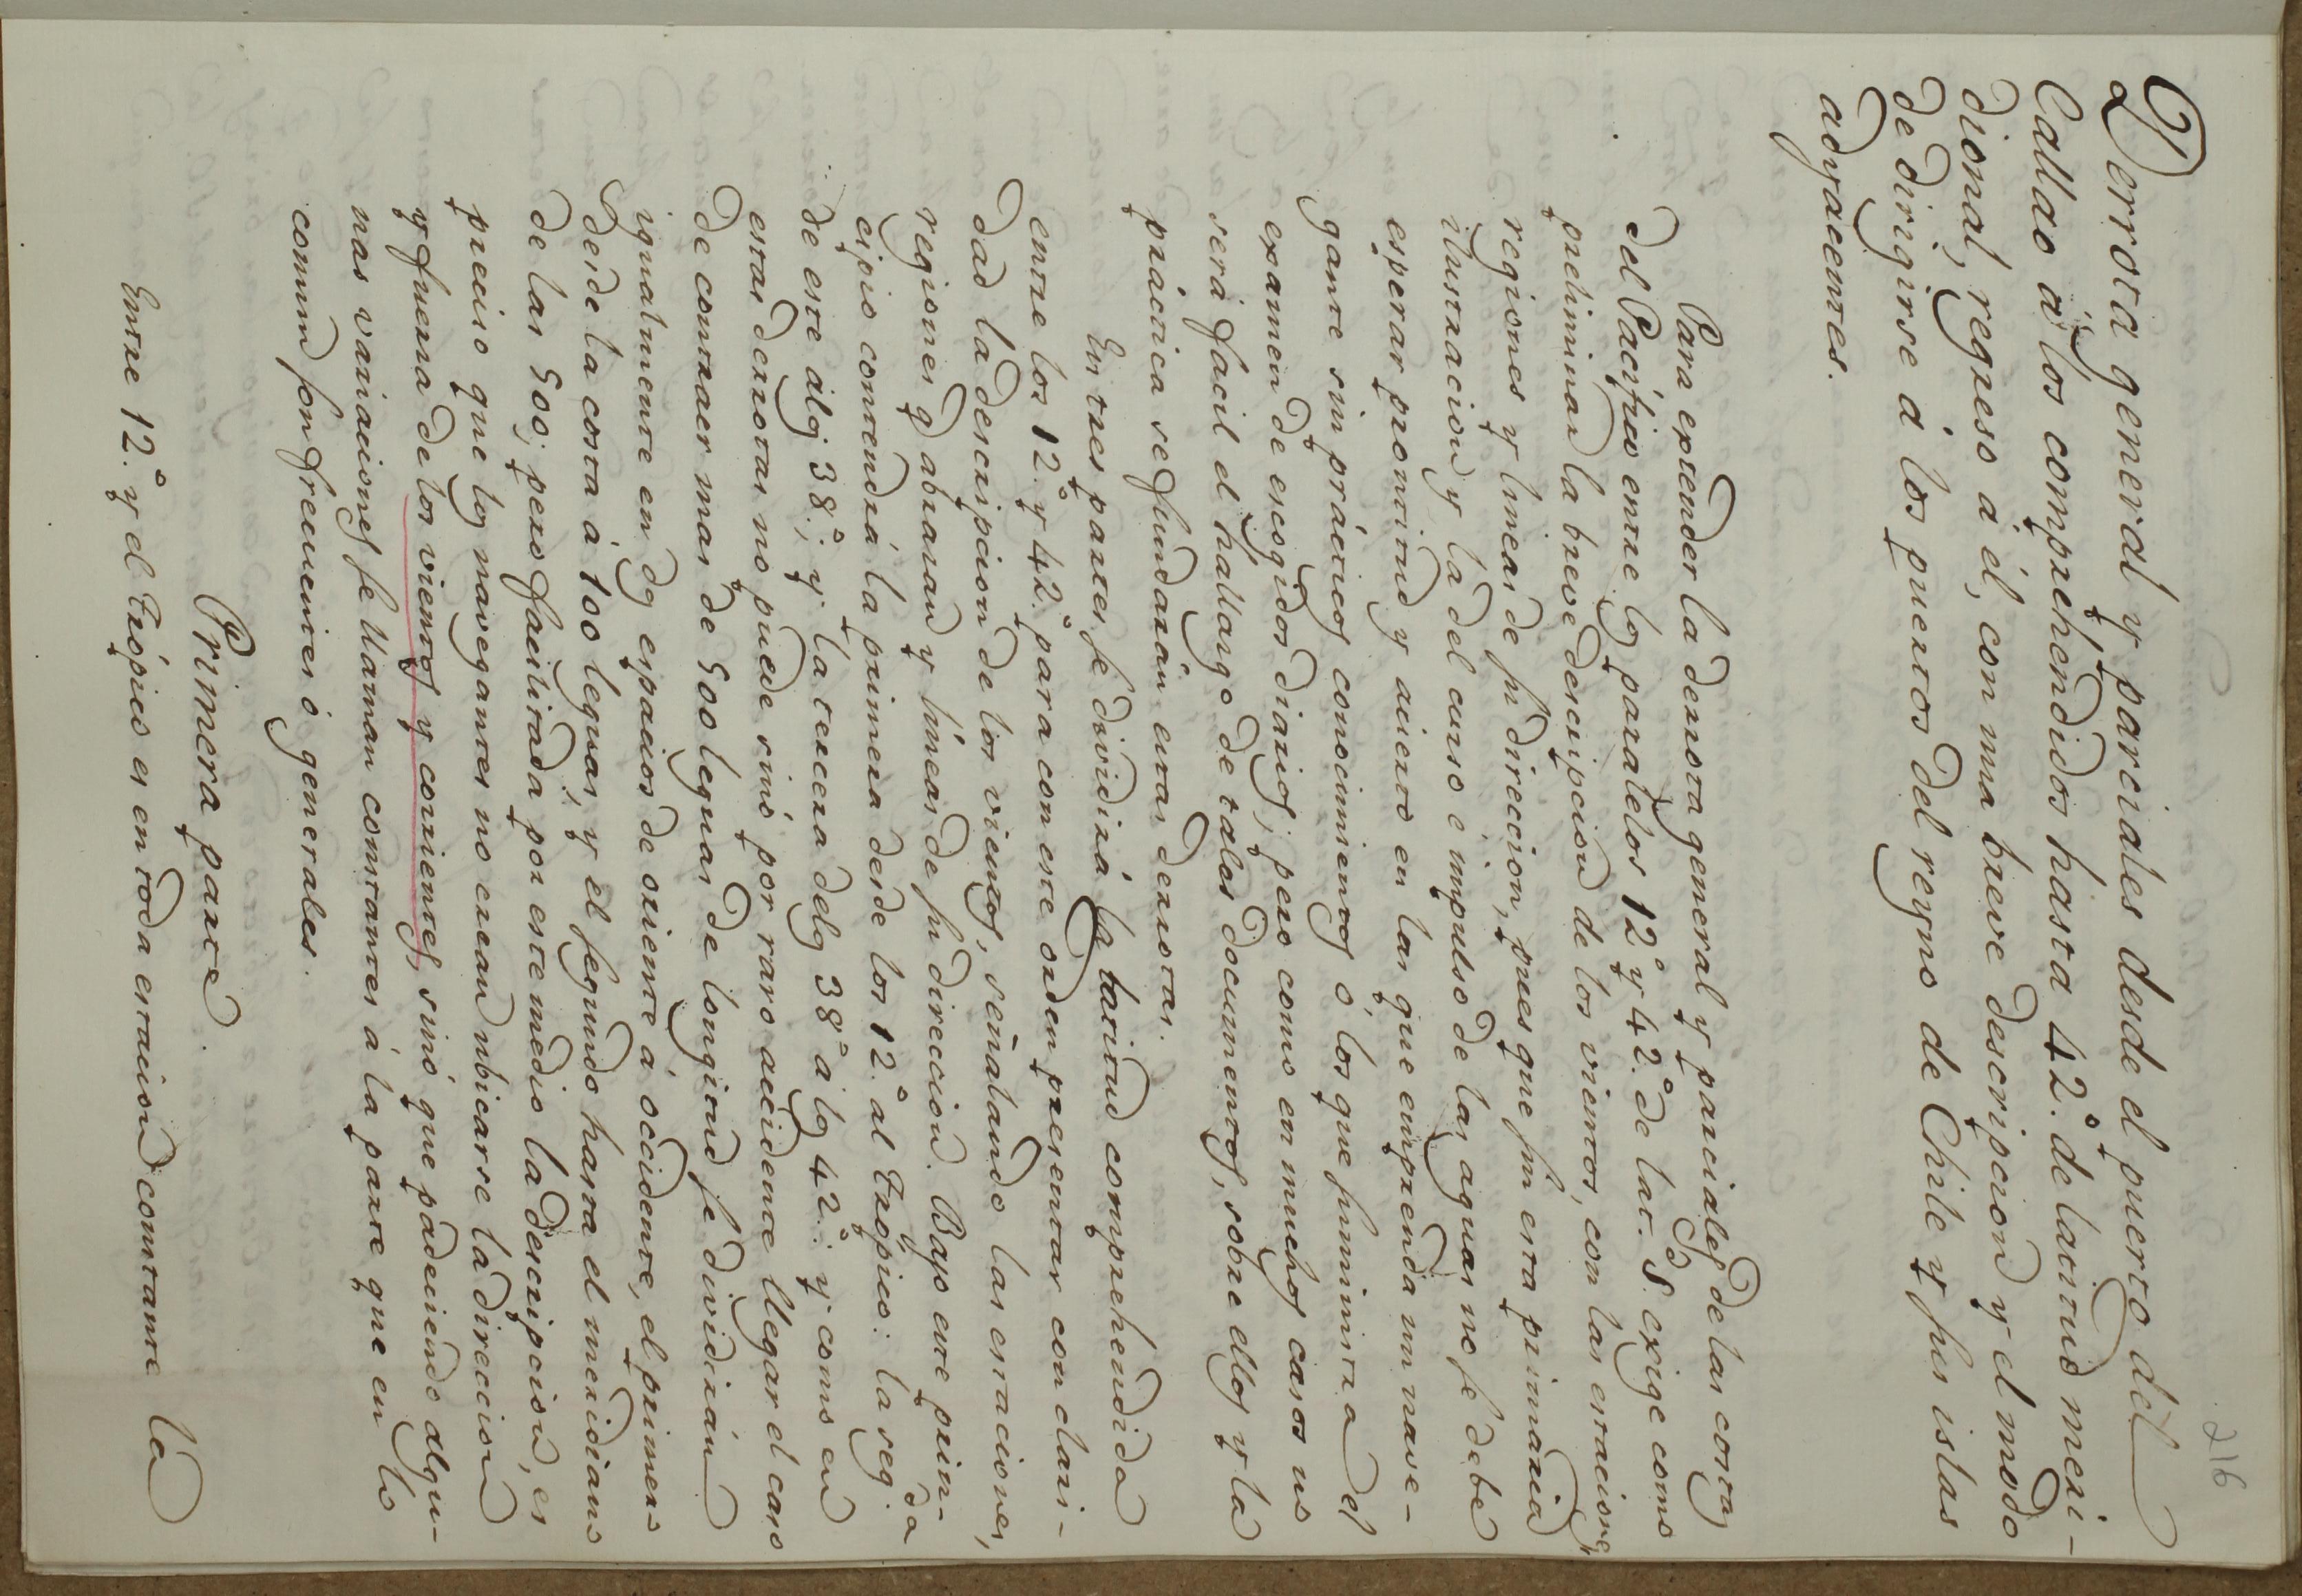 216
Derrota general y parciales desde el puerto del
Callao á los comprehendidos hasta 42.° de latitud meri-
dional, regreso á él, con una breve descripcion y el modo
de dirigirse á los puertos del reyno de Chile y sus islas
adyacentes.
Para extender la derrota general y parciales de las costas
del Pacífico entre los paralelos 12° y 42.° de lat.d S. exige como
preliminar la breve descripcion de los vientos, con las estaciones
regiones y lineas de su direccion, pues que sin esta primaria
ilustracion y la del curso é impulso de las aguas no se debe
esperar prontitud y acierto en las que emprenda un nave-
gante sin prácticos conocimientos ó los que suministra el
examen de escogidos diarios; pero como en muchos casos no
será facil el hallazgo de tales documentos, sobre ellos y la
práctica se fundarán estas derrotas.
En tres partes se dividirá la latitud comprehendida
entre los 12.° y 42.° para con este orden presentar con clari-
dad la descripcion de los vientos, señalando las estaciones,
regiones q abrazan y líneas de su direccion. Bajo este prin-
cipio contendrá la primera desde los 12.° al trópico: la seg.da
de este álos 38.°; y la tercera delos 38° á los 42.°: y como en
estas derrotas no puede sinó por raro accidente llegar el caso
de contraer mas de 500 leguas de longitud se dividirán
igualmente en dos espacios de oriente á occidente, el primero
desde la costa á 100 leguas, y el segundo hasta el meridiano
de las 500; pero facilitada por este medio la descripcion, es
preciso que los navegantes no crean ubicarse la direccion
y fuerza de los vientos y corrientes, sinó que padeciendo algu-
nas variaciones se llaman constantes á la parte que en lo
comun son frecuentes ó generales.
Primera parte.
Entre 12.° y el trópico es en toda estacion constante la